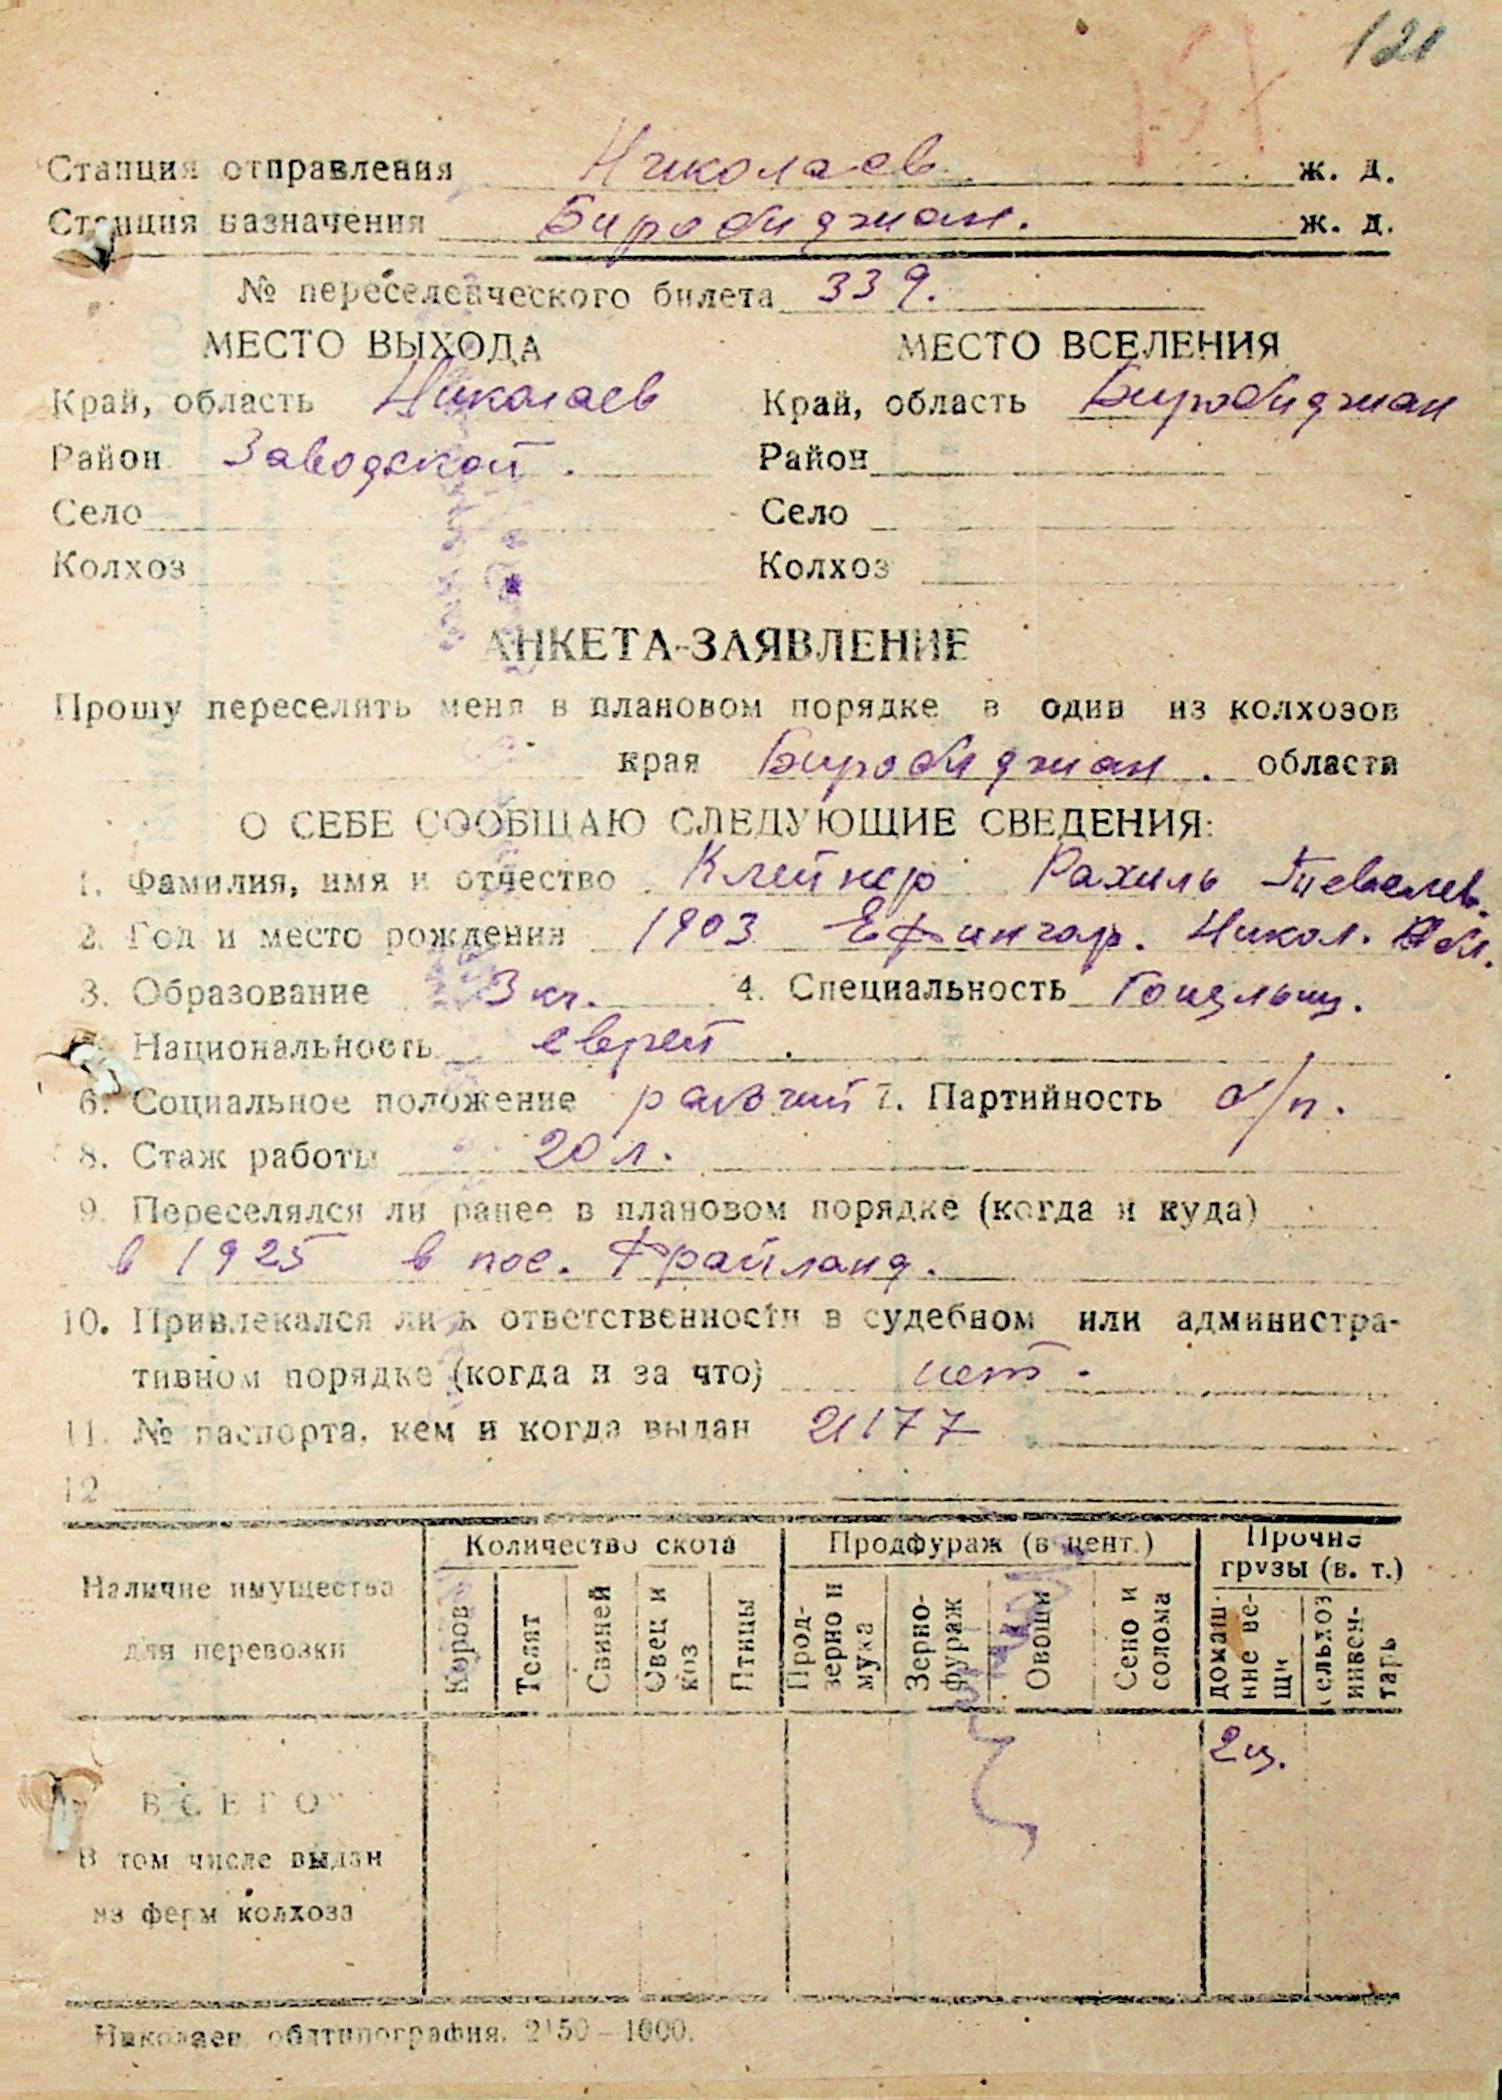 121
157
Станция отправления Николаев ж. д.
Станция назначения Биробиджан. ж. д.
№ переселенческого билета 339.
МЕСТО ВЫХОДА МЕСТО ВСЕЛЕНИЯ
Край, область Николаев Край, область Биробиджан
Район Заводской. Район
Село Село
Колхоз Колхоз
АНКЕТА-ЗАЯВЛЕНИЕ
Прошу переселить меня в плановом порядке в один из колхозов
края Биробиджан. области
О СЕБЕ СООБЩАЮ СЛЕДУЮЩИЕ СВЕДЕНИЯ:
1. Фамилия, имя и отчество Клейнер Рахиль Тевелев.
2. Год и место рождения 1903 Ефингар. Никол. Обл.
3. Образование 3 кл. 4. Специальность
Национальность еврей
6. Социальное положение рабочий 7. Партийность б/п.
8. Стаж работы 20 л.
9. Переселялся ли ранее в плановом порядке (когда и куда)
в 1925 в пос. Фрайланд.
10. Привлекался ли к ответственности в судебном или администра-
тивном порядке (когда и за что) нет.
11. № паспорта, кем и когда выдан 21177
12
Наличие имущества для перевозки
Количество скота Продфураж (в цент.) Прочие грузы (в. т.)
Коров Телят Свиней Овец и коз Птицы Прод-зерно и мука Зерно-фураж Овощи Сено и солома домаш-ние ве-щи сельхоз инвен-тарь
2 ц.
ВСЕГО
В том числе выдан
из ферм колхоза
Николаев, облтипография. 2150–1000.